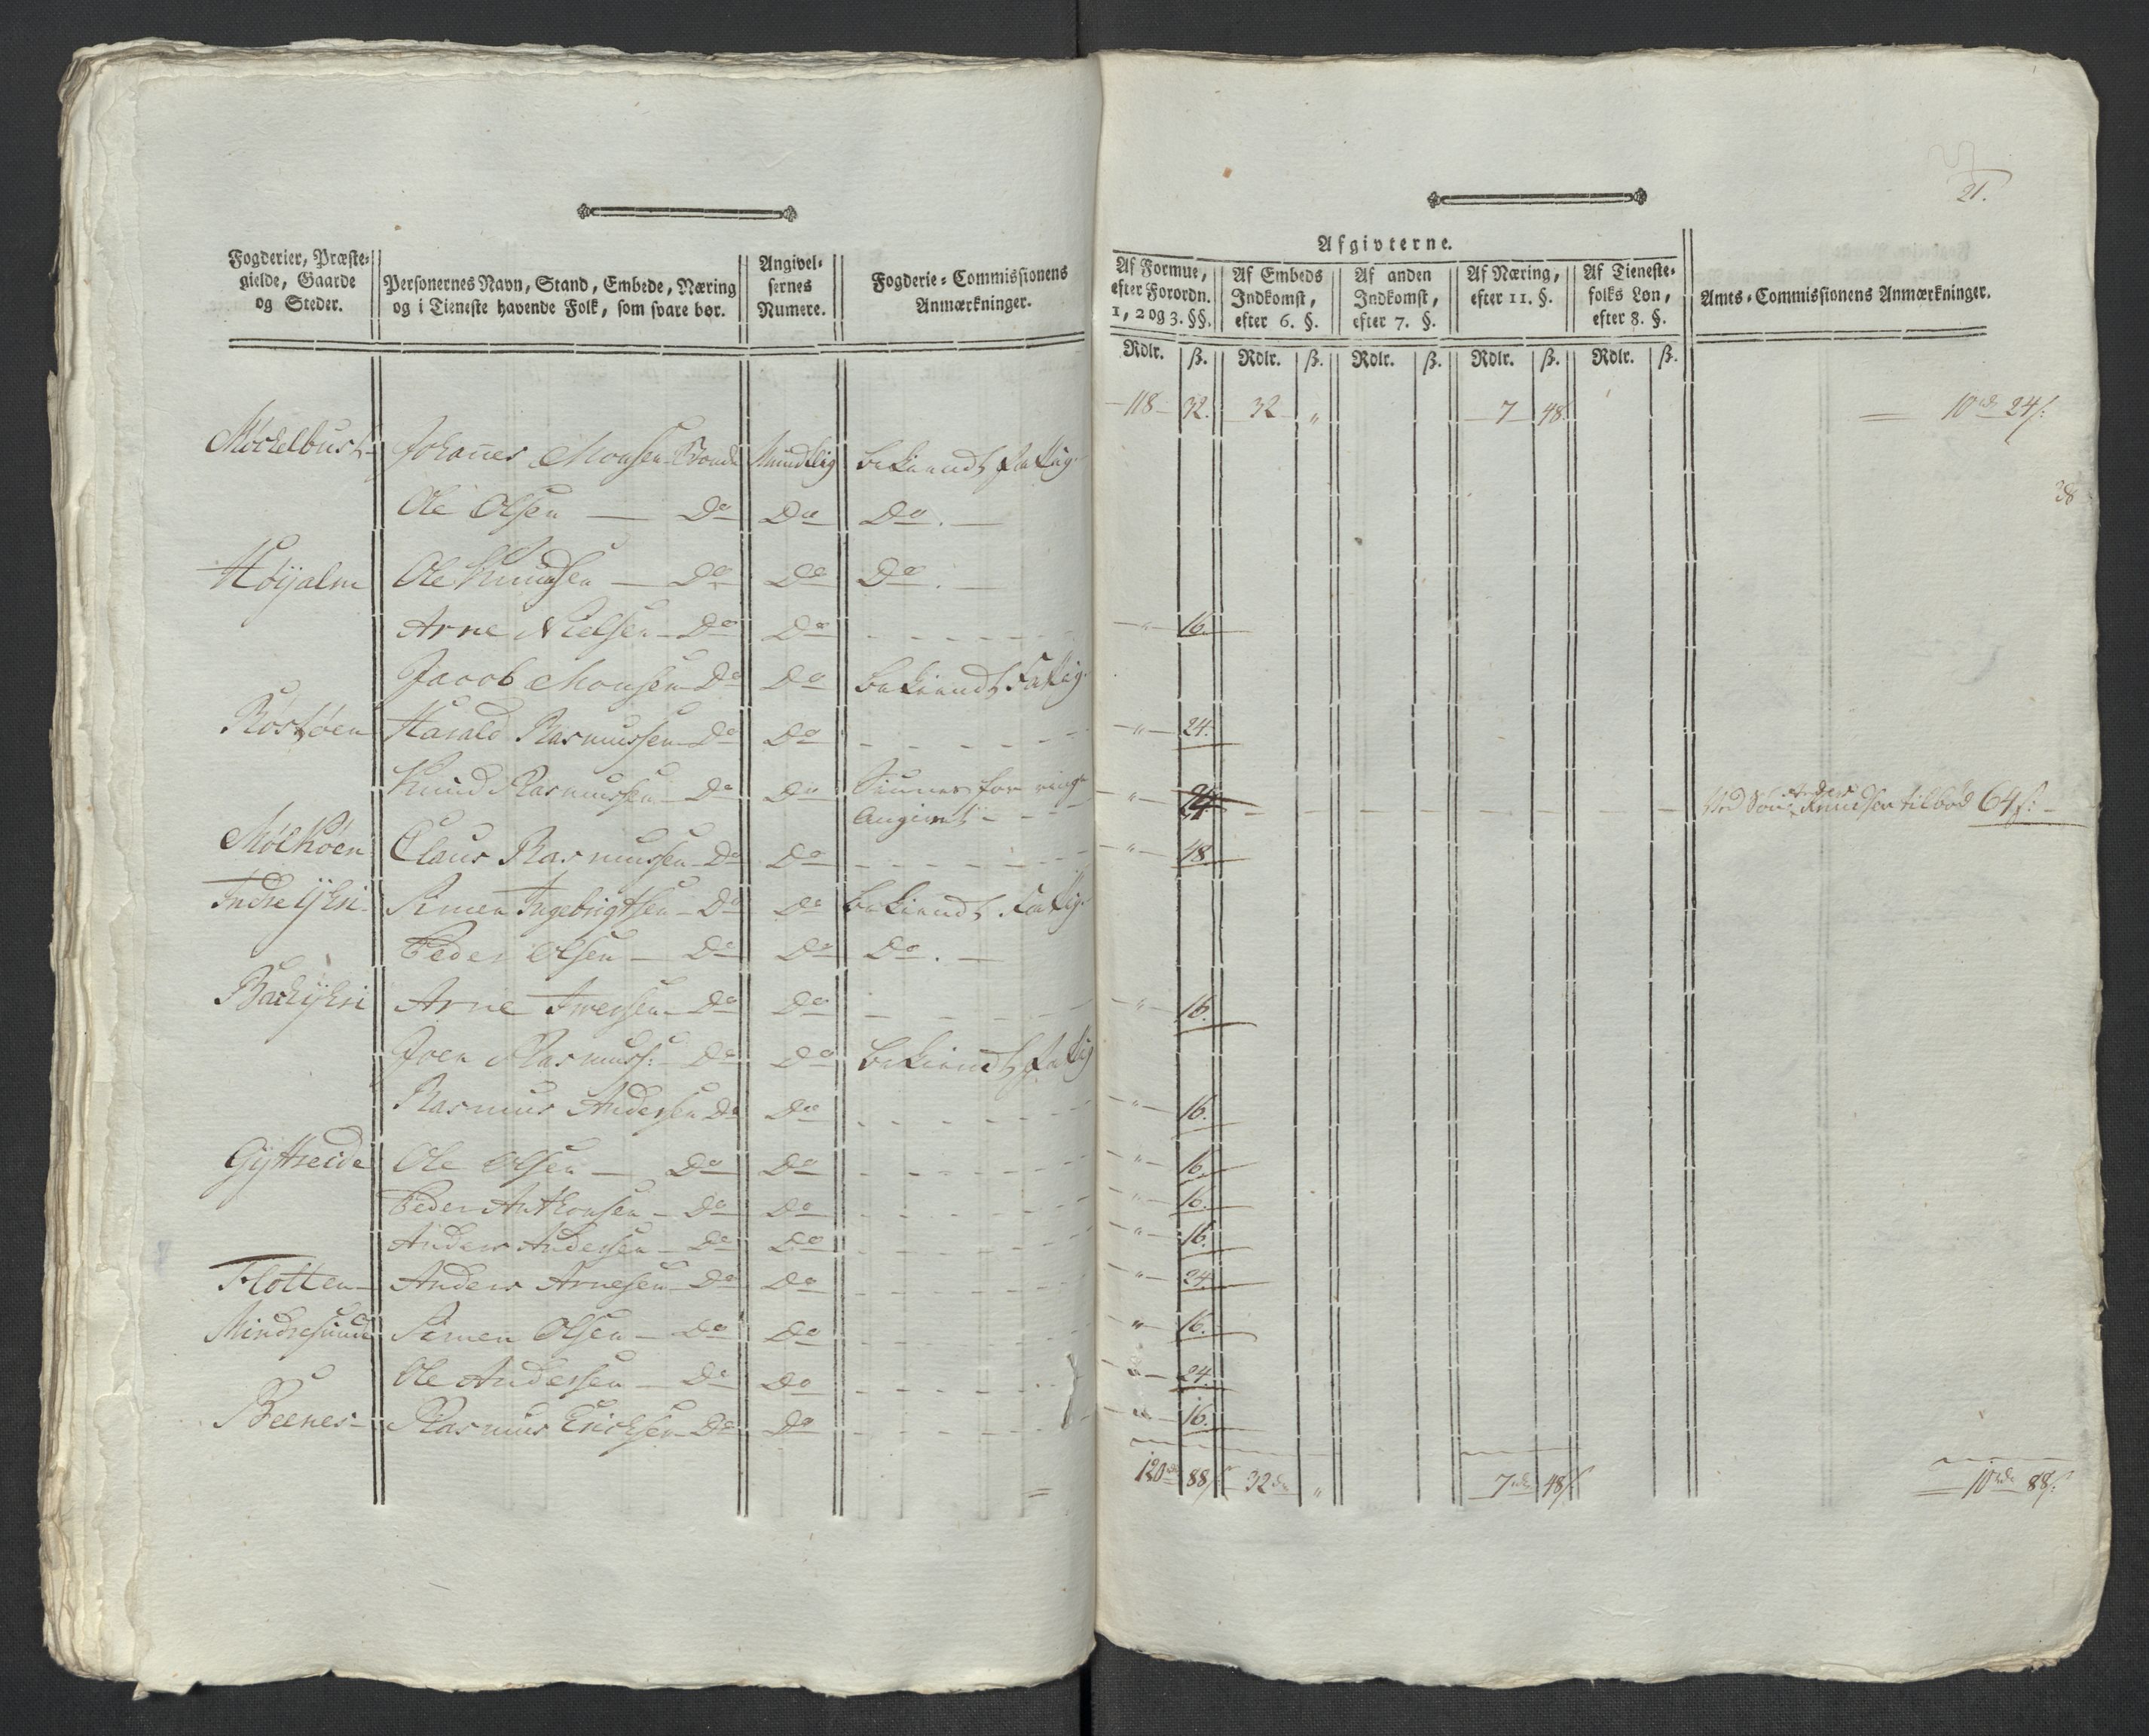 21.
Afgivterne.
Fogderier, Præste-
gielde, Gaarde
og Steder.
Personernes Navn, Stand, Embede, Næring
og i Tieneste havende Folk, som svare bør.
Angivel-
sernes
Numere.
Fogderie-Commissionens
Anmærkninger.
Af Formue,
efter Forordn.
1, 2 og 3. §§.
Af Embeds
Indkomst,
efter 6. §.
Af anden
Indkomst,
efter 7. §.
Af Næring,
efter 11. §.
Af Tieneste-
folks Løn,
efter 8. §.
Amts-Commissionens Anmærkninger.
Rdlr. ß. Rdlr. ß. Rdlr. ß. Rdlr. ß. Rdlr. ß.
118 32. 32 " 7 48. 10 rd 24 s:
Möckelbust Johannes Monsen Bonde Mundtlig bekiendt fattig
38
Ole Olsen — Do Do Do. —
Höijalm Ole Knudsen — Do Do Do. —
Arne Nielsen Do Do " 16.
Jacob Monsen Do Do bekiendt Fattig.
Röstöen Harald Rasmussen Do Do " 24.
Knud Rasmussen Do Do Siunes for ringe
angivet " 24 Ved Sön Anders Knudsen tilbød 64 s:
Molköen Claus Rasmussen Do Do " 48.
Indre ijksi Simen Ingebrigtsen Do Do bekiendt Fattig.
Peder Olsen — Do Do Do. —
Backijksi Arne Iversen Do Do " 16.
Joen Rasmuss: Do Do bekiendt fattig
Rasmus Andersen Do Do " 16.
Gijttreide Ole Olsen — Do Do " 16.
Peder Anthonsen — Do Do " 16.
Anders Andersen — Do Do " 16.
Flotten Anders Arnesen Do Do " 24.
Mindresunde Simen Olsen — Do Do " 16.
Ole Andersen — Do Do " 24.
Beenes Rasmus Ericksen Do Do " 16.
120 rd 88 s 32 rd " 7 rd 48 s 10 rd 88 s: